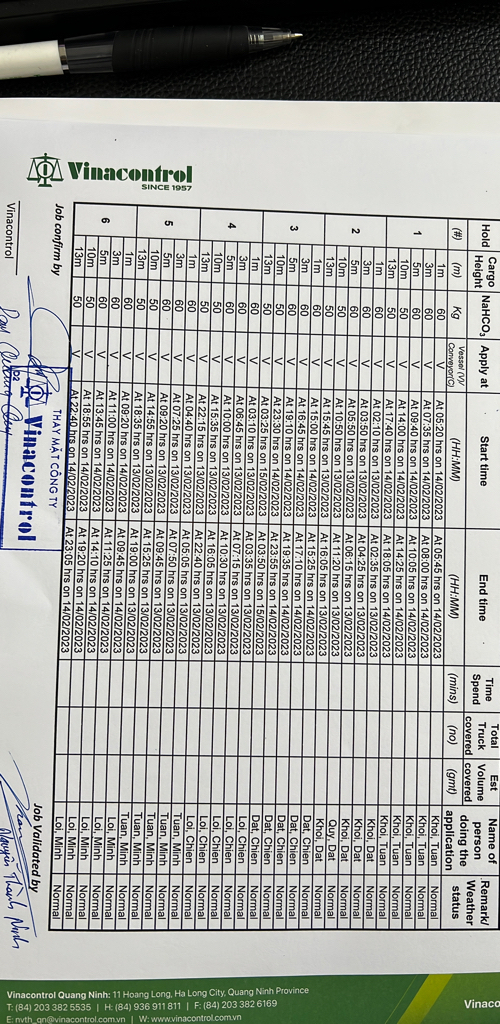 Vinacontrol
SINCE 1957
Hold Cargo Height NaHCO3 Apply at Start time End time Time Spend Total Truck covered Est Volume covered Name of person doing the application Remark/ Weather status
(#) (m) Kg Vessel (V)/ Conveyor(C) (HH:MM) (HH:MM) (mins) (no) (gmt)
1 1m 60 V At 05:20 hrs on 14/02/2023 At 05:45 hrs on 14/02/2023 Khoi, Tuan Normal
3m 60 V At 07:35 hrs on 14/02/2023 At 08:00 hrs on 14/02/2023 Khoi, Tuan Normal
5m 60 V At 09:40 hrs on 14/02/2023 At 10:05 hrs on 14/02/2023 Khoi, Tuan Normal
10m 50 V At 14:00 hrs on 14/02/2023 At 14:25 hrs on 14/02/2023 Khoi, Tuan Normal
13m 50 V At 17:40 hrs on 14/02/2023 At 18:05 hrs on 14/02/2023 Khoi, Tuan Normal
2 1m 60 V At 02:10 hrs on 13/02/2023 At 02:35 hrs on 13/02/2023 Khoi, Dat Normal
3m 60 V At 03:50 hrs on 13/02/2023 At 04:25 hrs on 13/02/2023 Khoi, Dat Normal
5m 60 V At 05:50 hrs on 13/02/2023 At 06:15 hrs on 13/02/2023 Khoi, Dat Normal
10m 50 V At 10:50 hrs on 13/02/2023 At 11:15 hrs on 13/02/2023 Khoi, Dat Normal
13m 50 V At 15:45 hrs on 13/02/2023 At 16:05 hrs on 13/02/2023 Quy, Dat Normal
3 1m 60 V At 15:00 hrs on 14/02/2023 At 15:25 hrs on 14/02/2023 Khoi, Dat Normal
3m 60 V At 16:45 hrs on 14/02/2023 At 17:10 hrs on 14/02/2023 Dat, Chien Normal
5m 60 V At 19:10 hrs on 14/02/2023 At 19:35 hrs on 14/02/2023 Dat, Chien Normal
10m 50 V At 23:30 hrs on 14/02/2023 At 23:55 hrs on 14/02/2023 Dat, Chien Normal
13m 50 V At 03:25 hrs on 15/02/2023 At 03:50 hrs on 15/02/2023 Dat, Chien Normal
4 1m 60 V At 03:10 hrs on 13/02/2023 At 03:35 hrs on 13/02/2023 Dat, Chien Normal
3m 60 V At 06:45 hrs on 13/02/2023 At 07:15 hrs on 13/02/2023 Loi, Chien Normal
5m 60 V At 10:00 hrs on 13/02/2023 At 10:30 hrs on 13/02/2023 Loi, Chien Normal
10m 50 V At 15:35 hrs on 13/02/2023 At 16:05 hrs on 13/02/2023 Loi, Chien Normal
13m 50 V At 22:15 hrs on 13/02/2023 At 22:40 hrs on 13/02/2023 Loi, Chien Normal
5 1m 60 V At 04:40 hrs on 13/02/2023 At 05:05 hrs on 13/02/2023 Loi, Chien Normal
3m 60 V At 07:25 hrs on 13/02/2023 At 07:50 hrs on 13/02/2023 Tuan, Minh Normal
5m 60 V At 09:20 hrs on 13/02/2023 At 09:45 hrs on 13/02/2023 Tuan, Minh Normal
10m 50 V At 14:55 hrs on 13/02/2023 At 15:25 hrs on 13/02/2023 Tuan, Minh Normal
13m 50 V At 18:35 hrs on 13/02/2023 At 19:00 hrs on 13/02/2023 Tuan, Minh Normal
6 1m 60 V At 09:20 hrs on 14/02/2023 At 09:45 hrs on 14/02/2023 Tuan, Minh Normal
3m 60 V At 11:00 hrs on 14/02/2023 At 11:25 hrs on 14/02/2023 Loi, Minh Normal
5m 60 V At 13:45 hrs on 14/02/2023 At 14:10 hrs on 14/02/2023 Loi, Minh Normal
10m 50 V At 18:55 hrs on 14/02/2023 At 19:20 hrs on 14/02/2023 Loi, Minh Normal
13m 50 V At 22:40 hrs on 14/02/2023 At 23:05 hrs on 14/02/2023 Loi, Minh Normal
Job confirm by Job Validated by
THAY MẶT CÔNG TY
02 Vinacontrol
Nguyễn Thành Ninh
Vinacontrol
Vinaco
Vinacontrol Quang Ninh: 11 Hoang Long, Ha Long City, Quang Ninh Province
T: (84) 203 382 5535 | H: (84) 936 911 811 | F: (84) 203 382 6169
E: nvth_qn@vinacontrol.com.vn | W: www.vinacontrol.com.vn